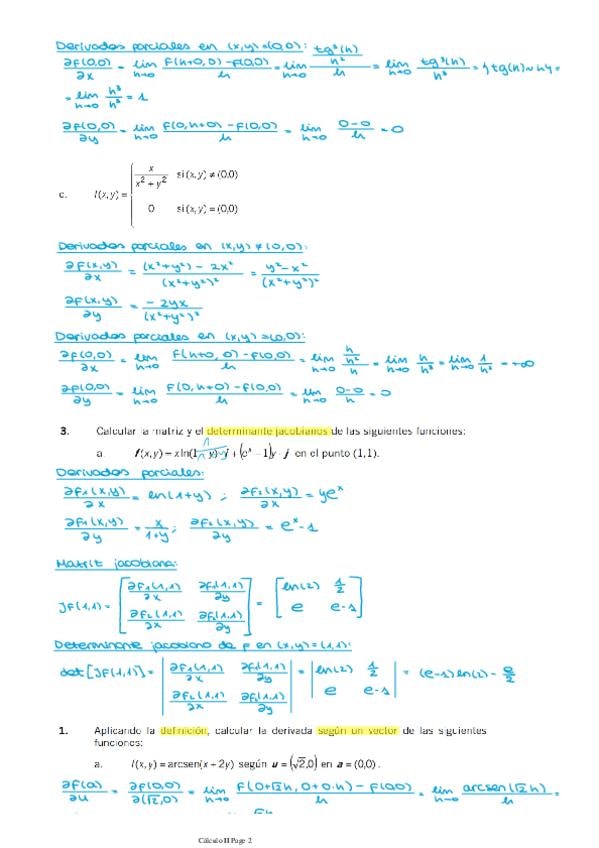 Derivadas parciales en (x,y)=(0,0):
∂F(0,0)/∂x = lim h→0 (F(h+0,0)-F(0,0))/h = lim h→0 (tg³(h)/h²)/h = lim h→0 tg³(h)/h³ = { tg(h)~h } =
= lim h→0 h³/h³ = 1
∂F(0,0)/∂y = lim h→0 (F(0,h+0)-F(0,0))/h = lim h→0 (0-0)/h = 0
c. f(x,y) = { x/(x²+y²) si (x,y) ≠ (0,0)
0 si (x,y) = (0,0)
Derivadas parciales en (x,y) ≠ (0,0):
∂F(x,y)/∂x = ((x²+y²)-2x²)/(x²+y²)² = (y²-x²)/(x²+y²)²
∂F(x,y)/∂y = -2yx/(x²+y²)²
Derivadas parciales en (x,y)=(0,0):
∂F(0,0)/∂x = lim h→0 (F(h+0,0)-F(0,0))/h = lim h→0 (h/h²)/h = lim h→0 h/h³ = lim h→0 1/h² = +∞
∂F(0,0)/∂y = lim h→0 (F(0,h+0)-F(0,0))/h = lim h→0 (0-0)/h = 0
3. Calcular la matriz y el determinante jacobianos de las siguientes funciones:
a. f(x,y) = x ln(1+y)·i + (eˣ-1)y·j en el punto (1,1).
Derivadas parciales:
∂F₁(x,y)/∂x = ln(1+y) ; ∂F₂(x,y)/∂x = yeˣ
∂F₁(x,y)/∂y = x/(1+y) ; ∂F₂(x,y)/∂y = eˣ-1
Matriz jacobiana:
JF(1,1) = [∂F₁(1,1)/∂x ∂F₁(1,1)/∂y ; ∂F₂(1,1)/∂x ∂F₂(1,1)/∂y] = [ln(2) 1/2 ; e e-1]
Determinante jacobiano de F en (x,y)=(1,1):
det[JF(1,1)] = |∂F₁(1,1)/∂x ∂F₁(1,1)/∂y ; ∂F₂(1,1)/∂x ∂F₂(1,1)/∂y| = |ln(2) 1/2 ; e e-1| = (e-1)ln(2) - e/2
1. Aplicando la definición, calcular la derivada según un vector de las siguientes
funciones:
a. f(x,y) = arcsen(x+2y) según u = (√2,0) en a = (0,0).
∂F(a)/∂u = ∂F(0,0)/∂(√2,0) = lim h→0 (F(0+√2h, 0+0·h)-F(0,0))/h = lim h→0 arcsen(√2h)/h =
Cálculo II Page 2